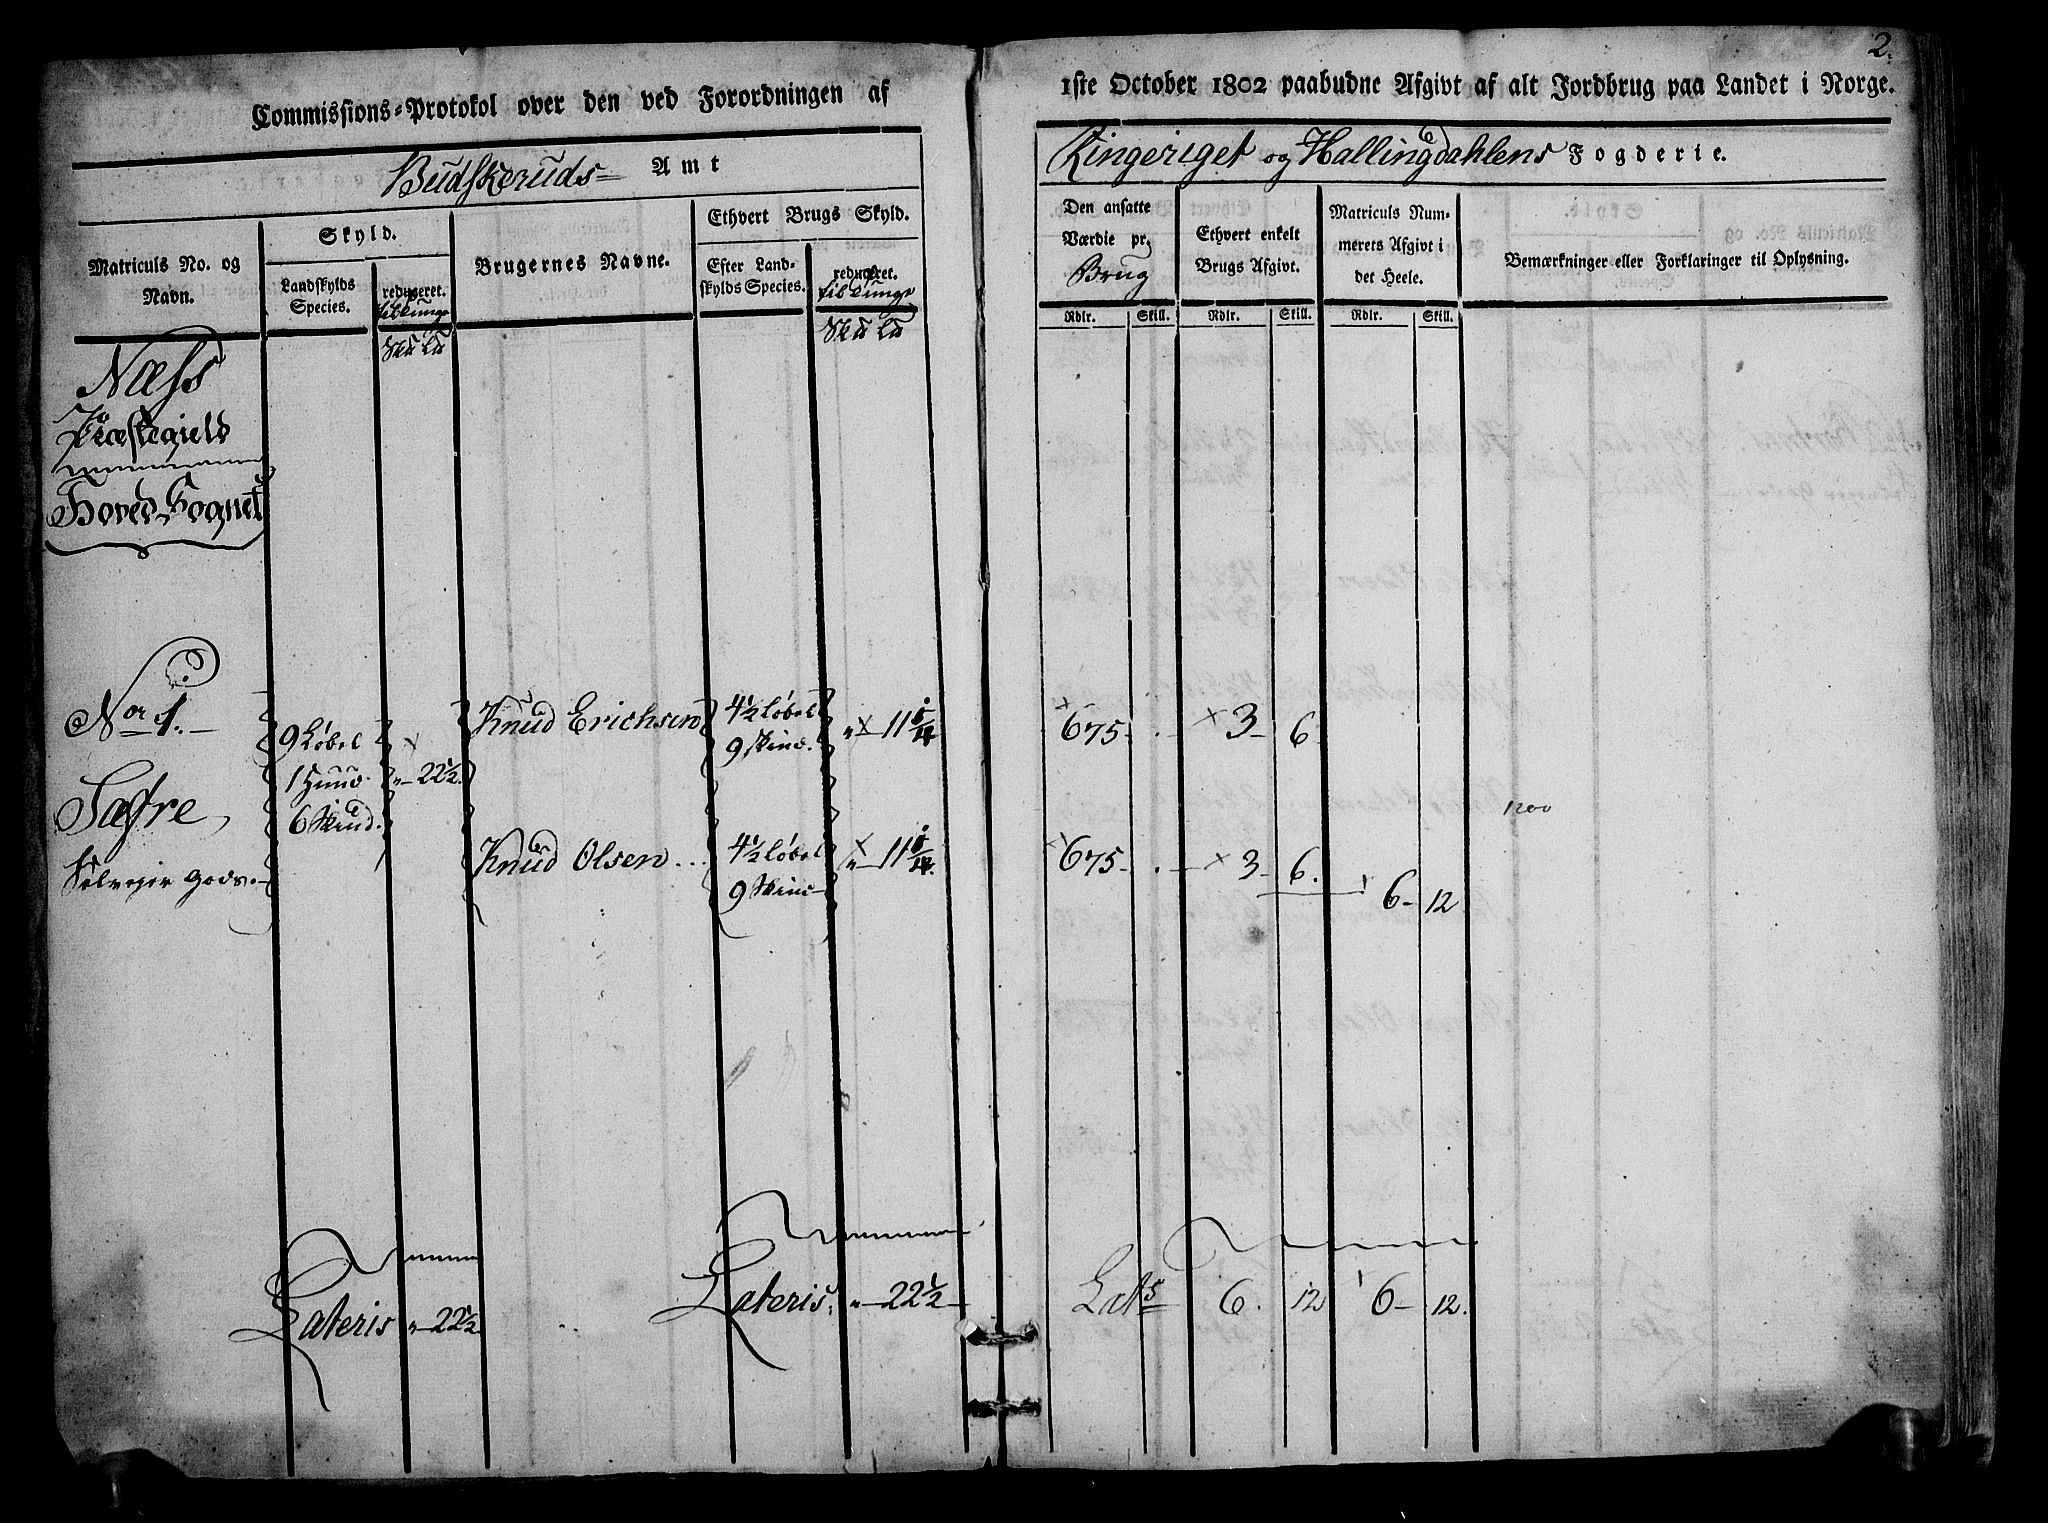 2.
Commissions-Protokol over den ved Forordningen af 1ste October 1802 paabudne Afgivt af alt Jordbrug paa Landet i Norge.
Budskeruds Amt
Ringeriget og Hallingdahlens Fogderie.
Matriculs No. og Navn.
Skyld.
Landskylds Species.
reduceret. til tunge
Sku Lu
Brugernes Navne.
Ethvert Brugs Skyld.
Efter Landskylds Species.
reduceret. til tunge
Sku Lu
Den ansatte Værdie pr. Brug
Rdlr. Skill.
Ethvert enkelt Brugs Afgivt.
Rdlr. Skill.
Matriculs Nummerets Afgivt i det Heele.
Rdlr. Skill.
Bemærkninger eller Forklaringer til Oplysning.
Næss
Præstegield
Hoved-Sognet
No 1.
Sæfre
Selveier Gods.
9 Løbel
1 Huud
6 Skind.
" 22½.
Knud Erichsen
4½ Løbel
9 Skind.
" 11
675 - . - 3 - 6
Knud Olsen
4½ Løbel
9 Skind
" 11
675 - . - 3 - 6.
6 - 12
1200
Lateris " 22½
Lateris. " 22½
Lats 6. 12 6 - 12.